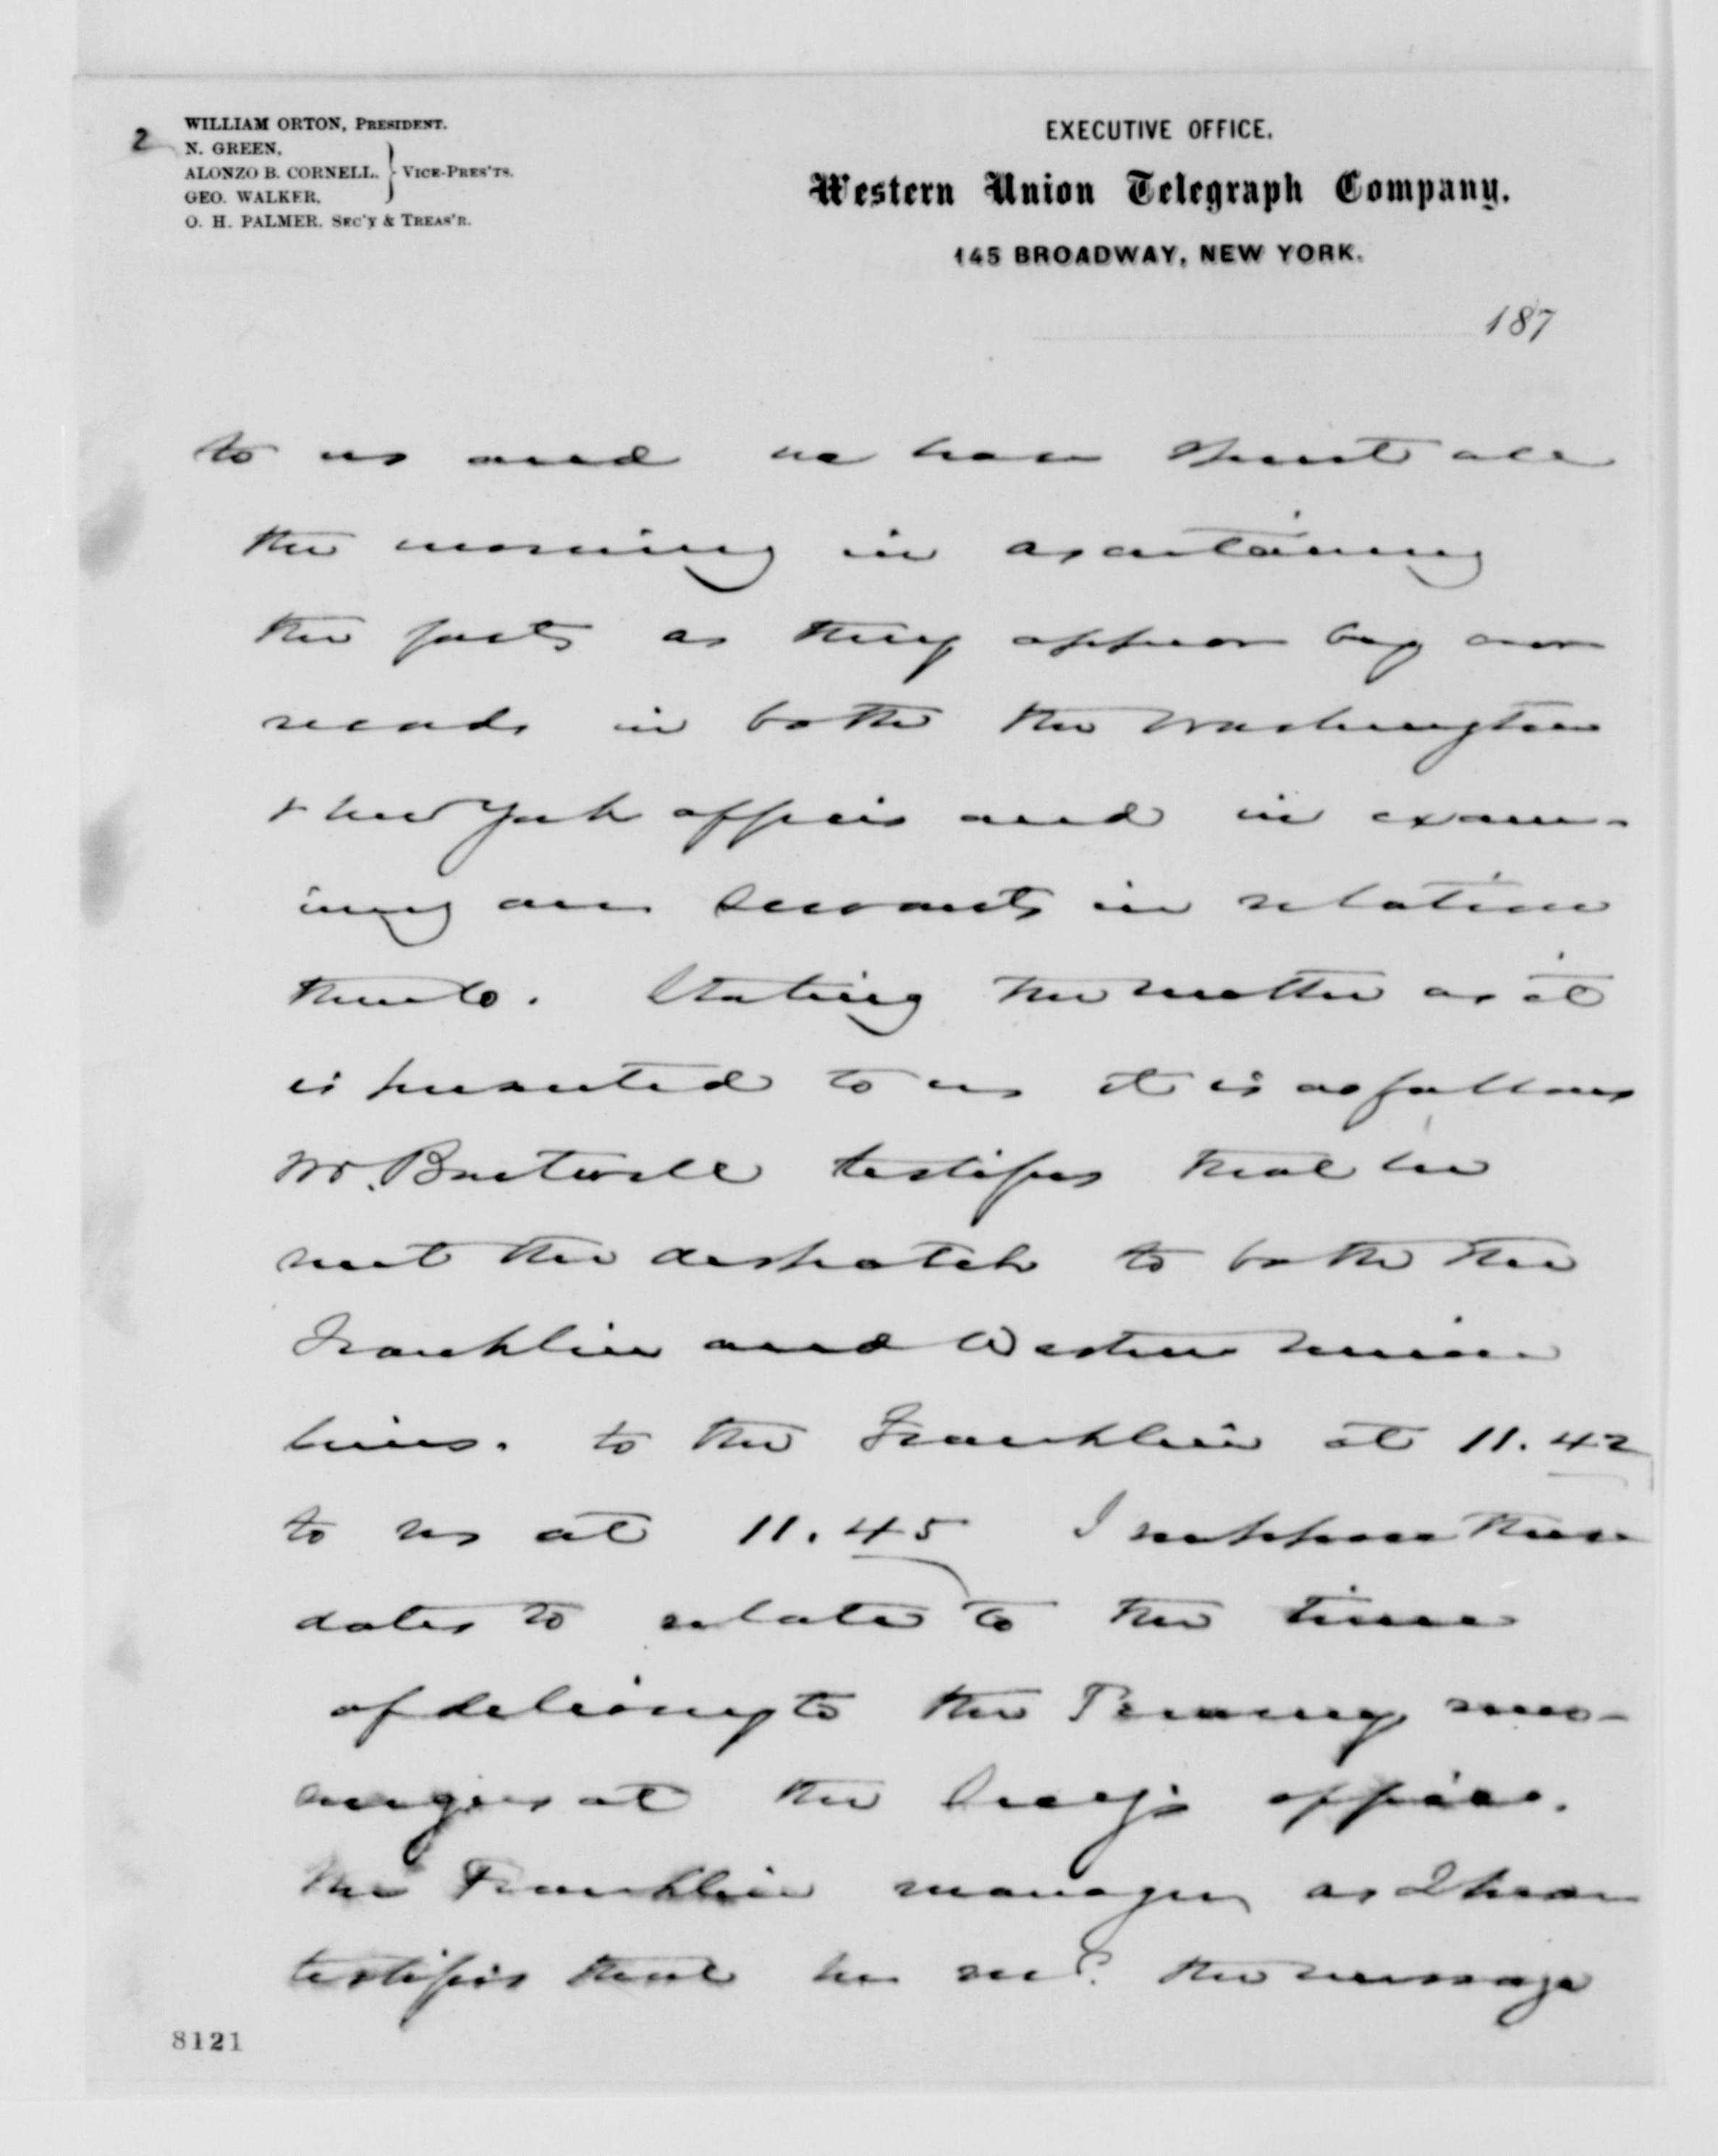 2
WILLIAM ORTON, PRESIDENT.
N. GREEN,
ALONZO B. CORNELL, } VICE-PRES'TS.
GEO. WALKER,
O. H. PALMER, SEC'Y & TREAS'R.
EXECUTIVE OFFICE.
Western Union Telegraph Company.
145 BROADWAY, NEW YORK.
187
to us and we have spent all
the morning in ascertaining
the facts as they appear by our
records in both the Washington
& New York offices and in exam-
ining our servants in relation
thereto. Stating the matter as it
is presented to us it is as follows
Mr. Boutwell testifies that he
sent the despatch to both the
Franklin and Western Union
lines. to the Franklin at 11.42
to us at 11.45 I suppose these
dates to relate to the time
of delivery to the Treasury mes-
sengers at the Secy's office.
The Franklin manager as I hear
testifies that he recd. the message
8121